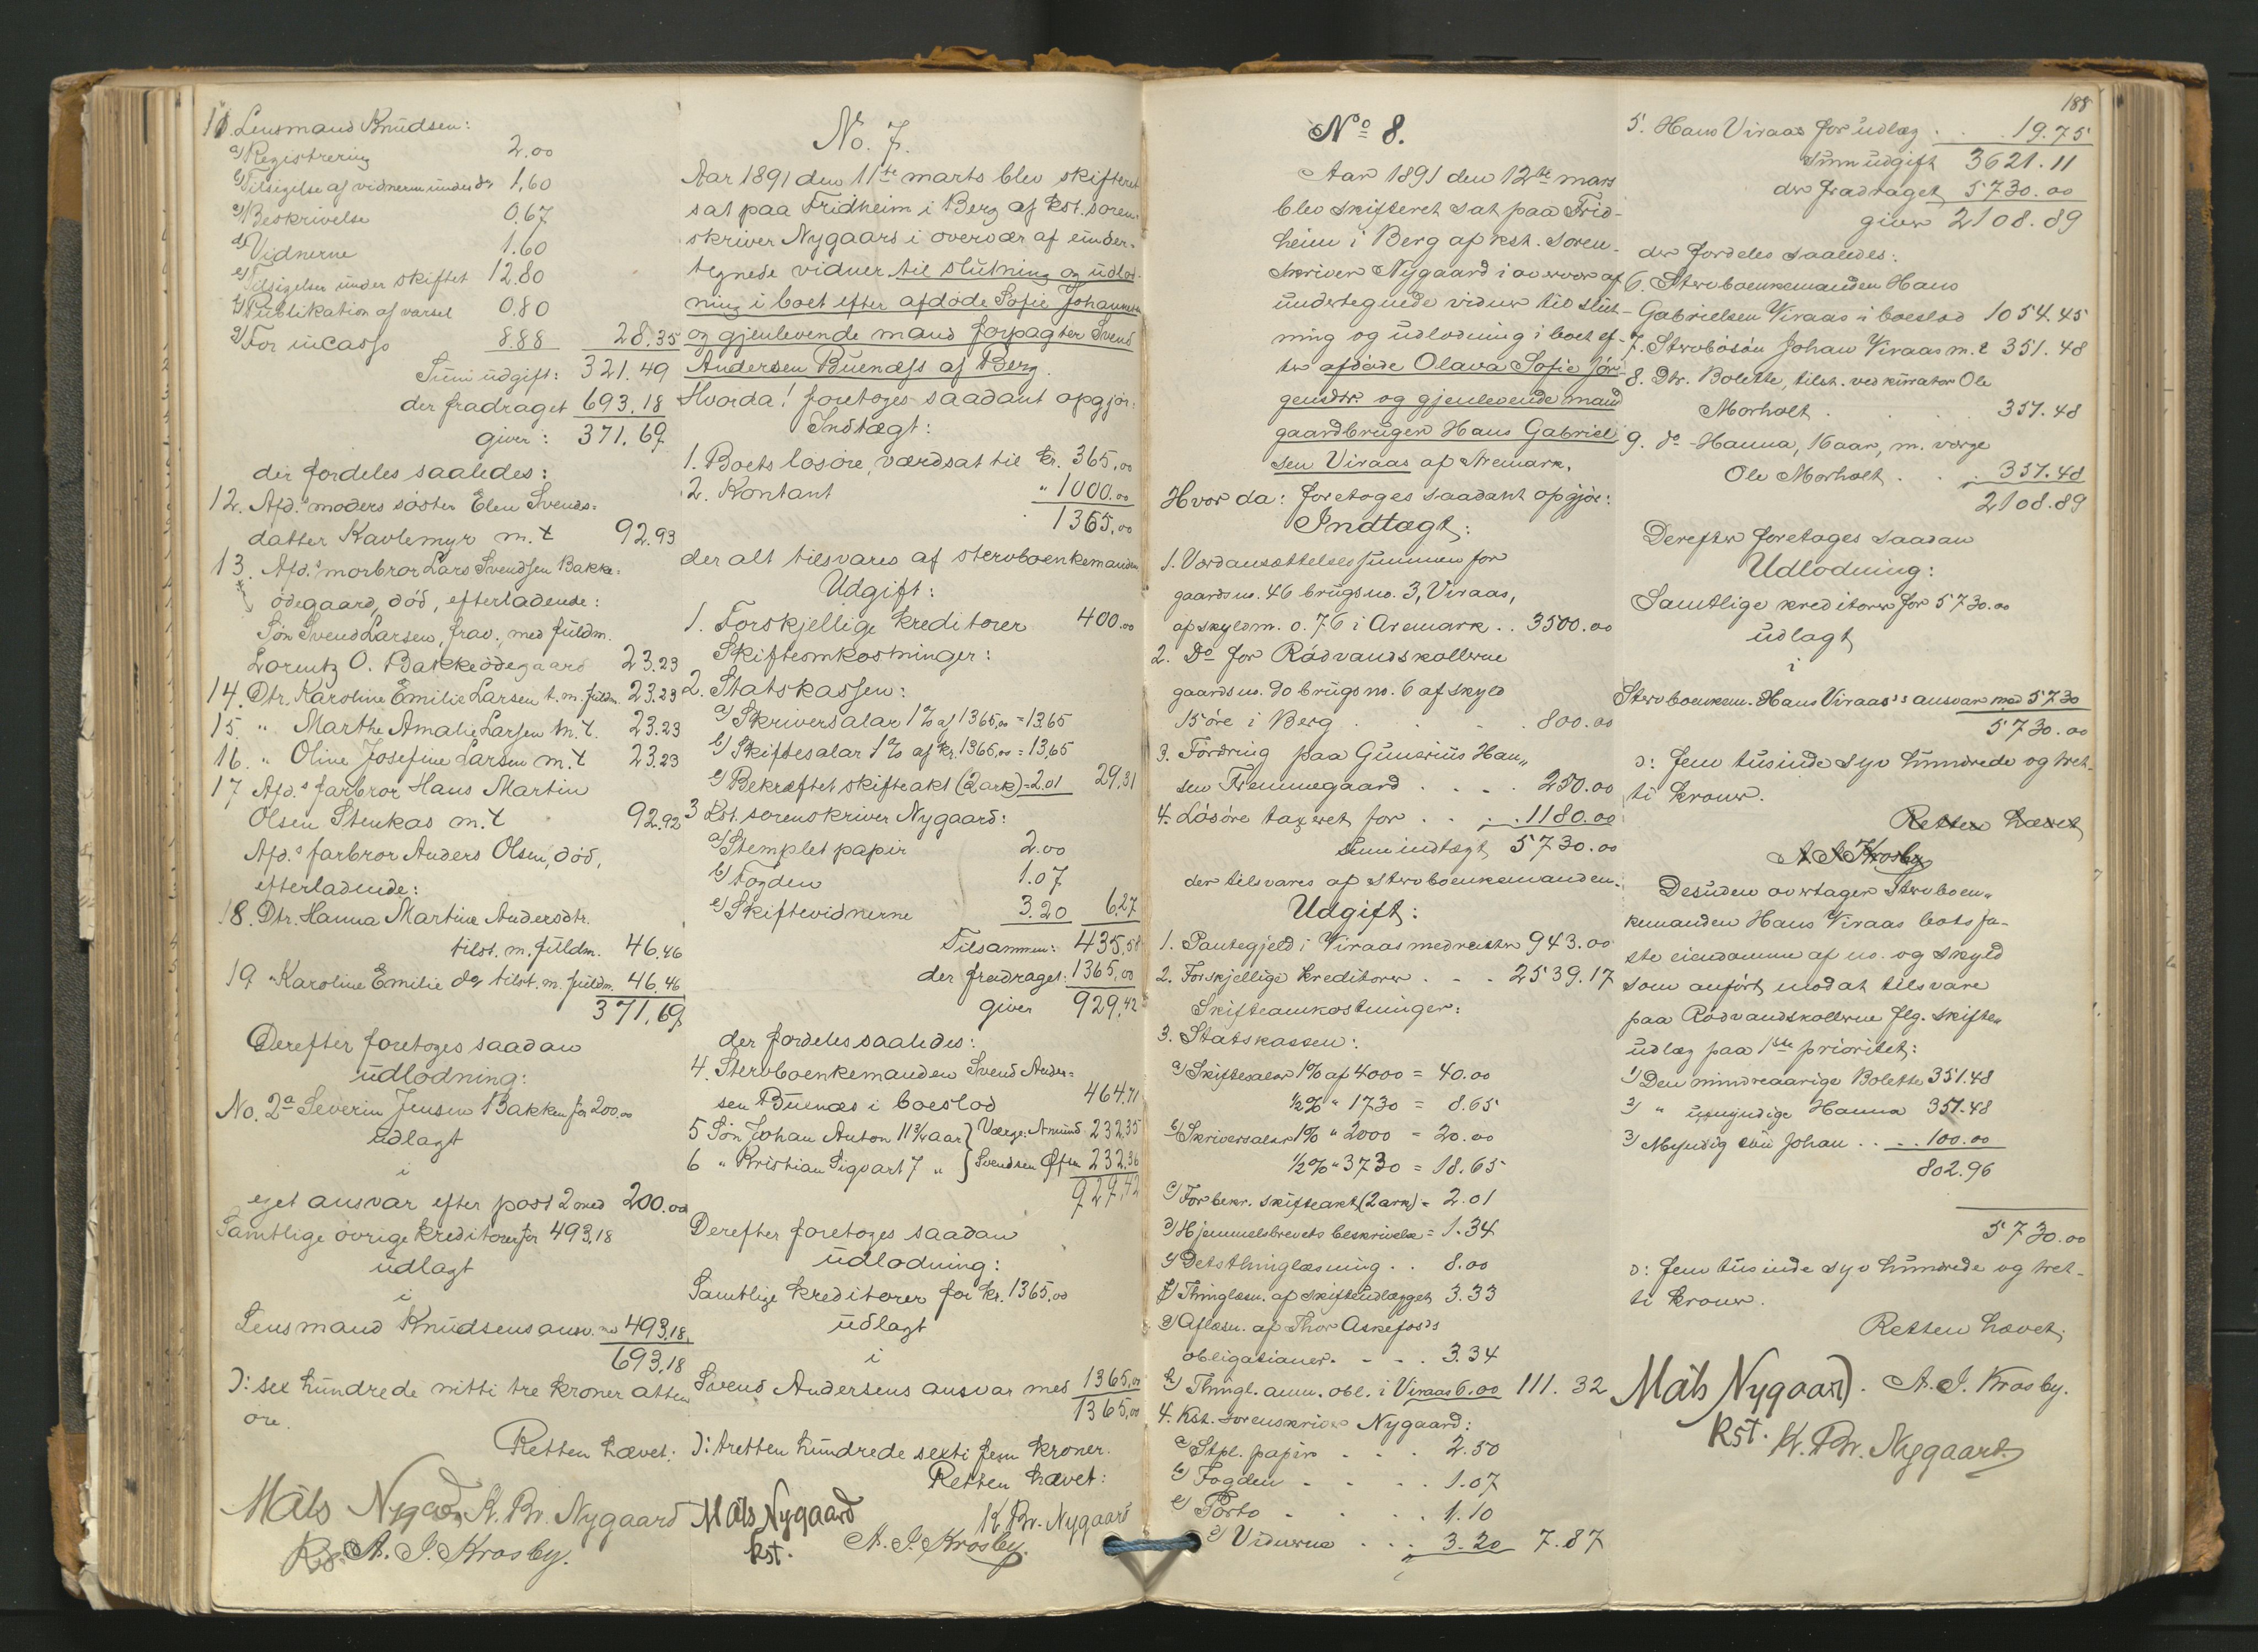 11. Lensmand Knudsen:
a) Registrering 2.00
b) Tilsigelse af vidnerne under do 1,60
c) Beskrivelse 0.67
d) Vidnerne 1.60
e) Tilsigelser under skiftet 12.80
f) Publikation af varsel 0.80
g) For incasso 8.88 28.35
Sum udgift: 321.49
der fradraget 693.18
giver: 371.69
der fordeles saaledes:
12. Afd.s moders söster Elen Svends-
datter Kavlemyr m. t 92.93
13. Afd.s morbror Lars Svendsen Bakke-
ödegaard, död, efterladende:
Sön Svend Larsen, frav., med fuldm.
Lorentz O. Bakkeödegaard 23.23
14. Dtr. Karoline Emilie Larsen t. m. fuldm. 23.23
15. " Marthe Amalie Larsen m. t. 23.23
16. " Oline Josefine Larsen m. t 23.23
17 Afd.s farbror Hans Martin
Olsen Stenkas m. t 92.92
Afd.s farbror Anders Olsen, död,
efterladende:
18. Dtr. Hanna Martine Andersdtr.
tilst. m. fuldm. 46,46
19 " Karoline Emilie do tilst. m. fuldm. 46.46
371,69
Derefter foretages saadan
udlodning:
No. 2a Severin Jensen Bakken for 200.00
udlagt
i
eget ansvar efter post 2 med 200.00
Samtlige övrige kreditorer for 493,18
udlagt
i
Lensmand Knudsens ansv. med 493,18
693,18
ɔ: sex hundrede nitti tre kroner atten
öre.
Retten hævet:
Mats Nygaard K. Br. Nygaard
Kst. A. J. Krosby.
No. 7.
Aar 1891 den 11te marts blev skifteret
sat paa Fridheim i Berg af kst. soren-
skriver Nygaard i overvær af under-
tegnede vidner til slutning og udlod-
ning i boet efter afdöde Sofie Johannesd.
og gjenlevende mand forpagter Svend
Andersen Buenæss af Berg.
Hvorda! foretages saadant opgjör:
Indtægt:
1. Boets lösöre, værdsat til kr. 365,00
2. Kontant " 1000.00
1365,00
der alt tilsvares af stervboenkemanden
Udgift:
1. Forskjellige kreditorer 400.00
Skifteomkostninger:
2. Statskassen:
a) Skriversalar 1% af 1365,00 = 13,65
b) Skiftesalar 1% af kr. 1365,00 = 13,65
c) Bekræftet skifteakt (2 ark) = 2.01 29,31
3 Kst. sorenskriver Nygaard:
a) Stemplet papir 2.00
b) Fogden 1.07
c) Skiftevidnerne 3.20 6,27
Tilsammen: 435,58
der fradraget: 1365,00
giver 929,42
der fordeles saaledes:
4. Stervboenkemanden Svend Ander-
sen Buenæs i boeslod 464.71
5 Sön Johan Anton 11 3/4 aar } Værge: Amund 232,35
6 " Kristian Sigvart 7 " } Svendsen 232,36
929,42
Derefter foretages saadan
udlodning:
Samtlige kreditorer for kr. 1365,00
udlagt
i
Svend Andersens ansvar med 1365,00
1365,00
ɔ: tretten hundrede sexti fem kroner.
Retten hævet:
Mats Nygaard K Br. Nygaard
kst. A. J. Krosby.
No 8.
Aar 1891 den 12te mars
blev skifteret sat paa Frid-
heim i Berg af kst. soren-
skriver Nygaard i overvær af
undertegnede vidner til slut-
ning og udlodning i boet ef-
ter afdöde Olava Sofie Jör-
gensdtr og gjenlevende mand
gaardbruger Hans Gabriel-
sen Viraas af Aremark.
Hvor da: foretages saadant opgjör:
Indtægt:
1. Værdansættelsessummen for
gaards no. 46 brugs no. 3, Viraas,
af skyld m. 0.76 i Aremark . . 3500.00
2. Do for Rödvandskollerne
gaards no. 90 brugs no. 6 af skyld
15 öre i Berg . . . 800.00
3. Fordring paa Gunerius Han-
sen Fremmegaard . . . . 250.00
4. Lösöre taxeret for . . . 1180.00
Sum indtægt 5730.00
der tilsvares af stervboenkemanden.
Udgift:
1. Pantegjeld i Viraas med renter 943.00
2. Forskjellige kreditorer . . . 2539.17
Skifteomkostninger:
3. Statskassen:
a) Skiftesalar 1% af 4000 = 40.00
1/2% " 1730 = 8.65
b) Skriversalar 1% " 2000 = 20.00
1/2% " 3730 = 18.65
c) For bekr. skifteakt (2 ark) = 2.01
d) Hjemmelsbrevets beskrivelse = 1.34
e) Dets thinglæsning . . 8.00
f) Thinglæsn. af skifteudlægget 3.33
g) Aflæsn. af Thor Askefos's
obligationer. . . . 3.34
h) Thingl. ann. obl. i Viraas 6.00 111.32
4. Kst. sorenskriver Nygaard:
a) Stpl. papir . . . 2.50
b) Fogden . . . . 1.07
c) Porto . . . . 1.10
d) Vidnerne . . . 3.20 7.87
188
5. Hans Viraas for udlæg . . . 19.75
Sum udgift 3621.11
der fradraget 5730.00
giver 2108.89
der fordeles saaledes:
6. Stervboenkemanden Hans
Gabrielsen Viraas i boeslod 1054.45
7. Stervbosön Johan Viraas m. t 351.48
8. Dtr. Bolette, tilst. ved kurator Ole
Morholt . . . . 351.48
9. do Hanna, 16 aar, m. værge
Ole Morholt . . . 351.48
2108.89
Derefter foretages saadan
Udlodning:
Samtlige kreditorer for 5730.00
udlagt
i
Stervboenkem. Hans Viraas's ansvar med 5730
5730.00
ɔ: fem tusinde syv hundrede og tret-
ti kroner.
Retten hævet
A J Krosby
Desuden overtager stervboen-
kemanden Hans Viraas boets fa-
ste eiendomme af no. og skyld
som anfört mod at tilsvare
paa Rödvandskollerne flg. skifte-
udlæg paa 1ste prioritet:
1) Den mindreaarige Bolette 351.48
2) " umyndige Hanna 351.48
3) Myndig sön Johan . . . . 100.00
802.96
5730.00
ɔ: fem tusinde syv hundrede og tret-
ti kroner.
Retten hævet.
Mats Nygaard. A. J. Krosby.
kst. K. Br. Nygaard.